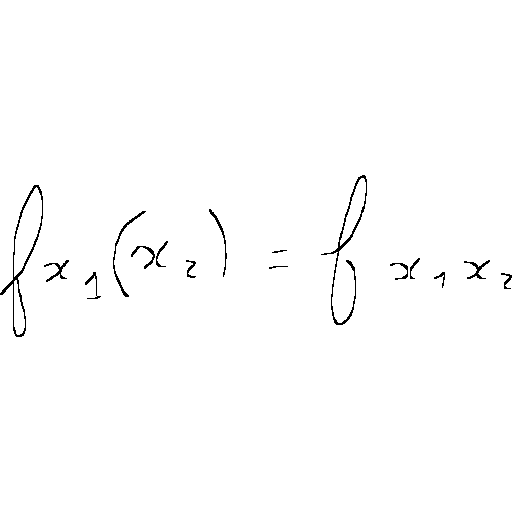 f_{x_1}(x_2) = f_{x_1 x_2}